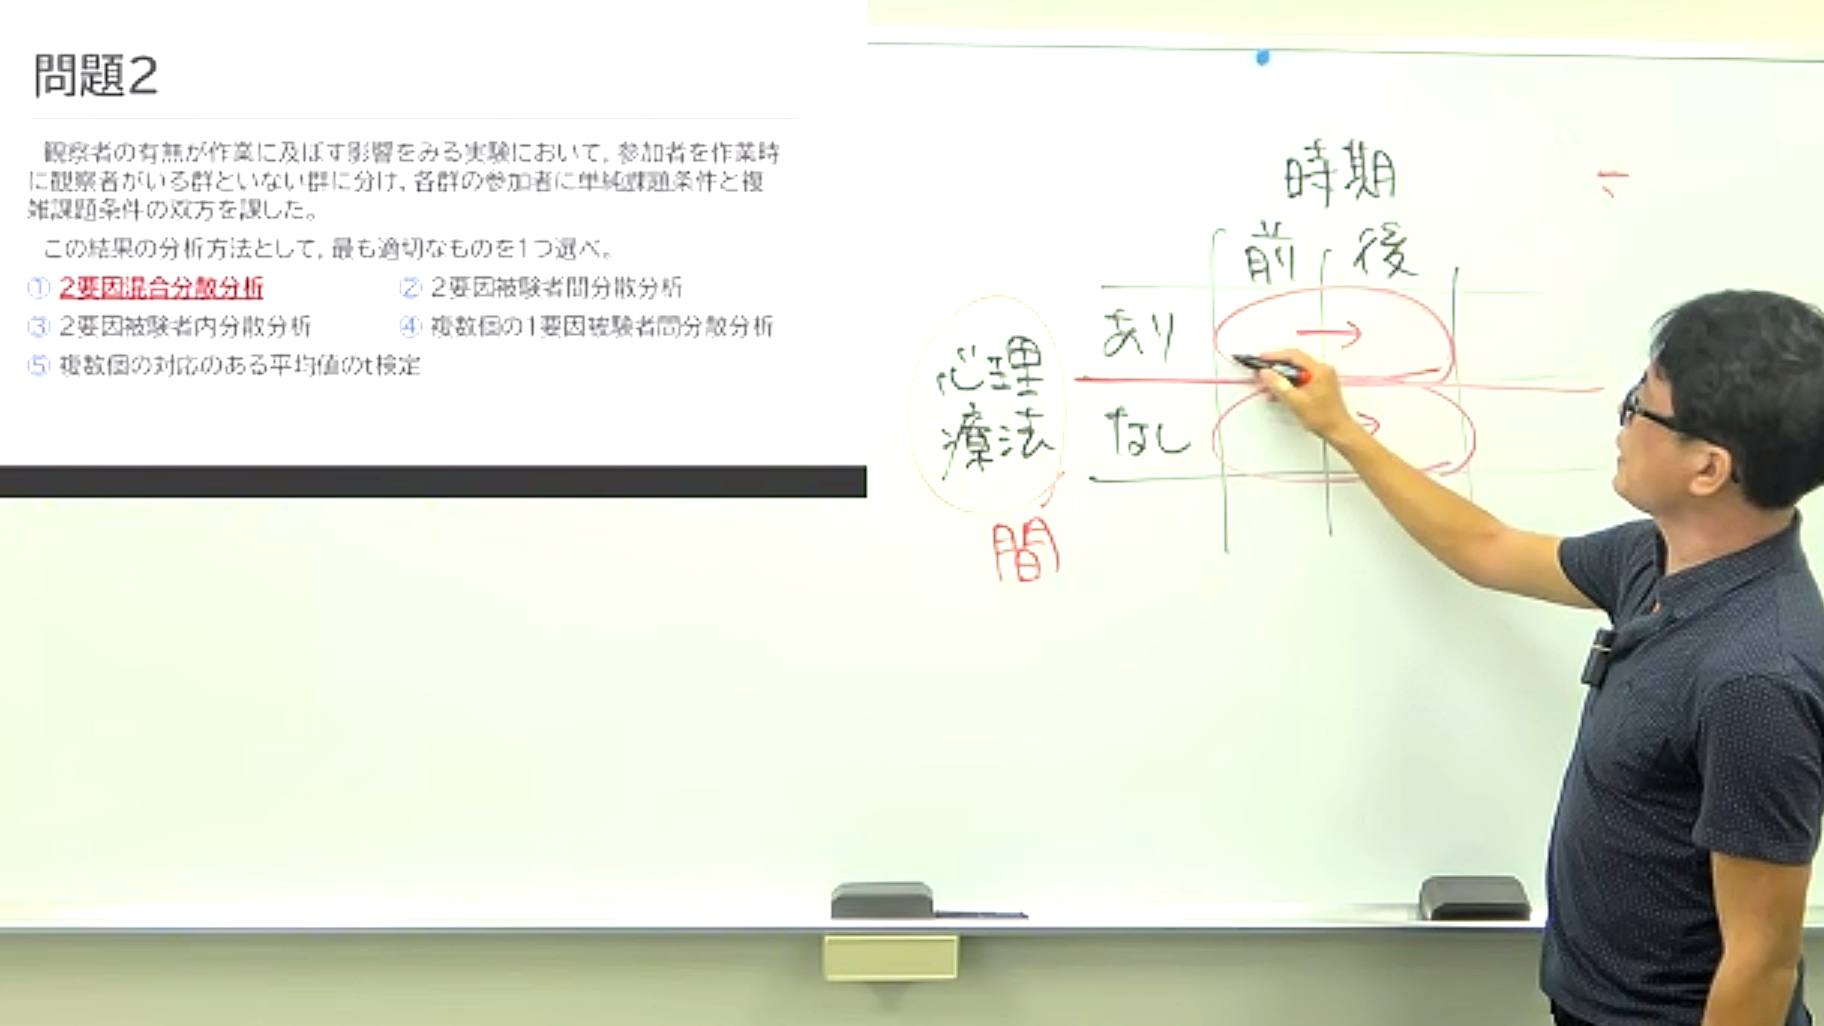 問題2
観察者の有無が作業に及ぼす影響をみる実験において，参加者を作業時
に観察者がいる群といない群に分け，各群の参加者に単純課題条件と複
雑課題条件の双方を課した。
この結果の分析方法として，最も適切なものを1つ選べ。
① 2要因混合分散分析
② 2要因被験者間分散分析
③ 2要因被験者内分散分析
④ 複数個の1要因被験者間分散分析
⑤ 複数個の対応のある平均値のt検定
時期
前 後
心理
療法
あり
なし
間